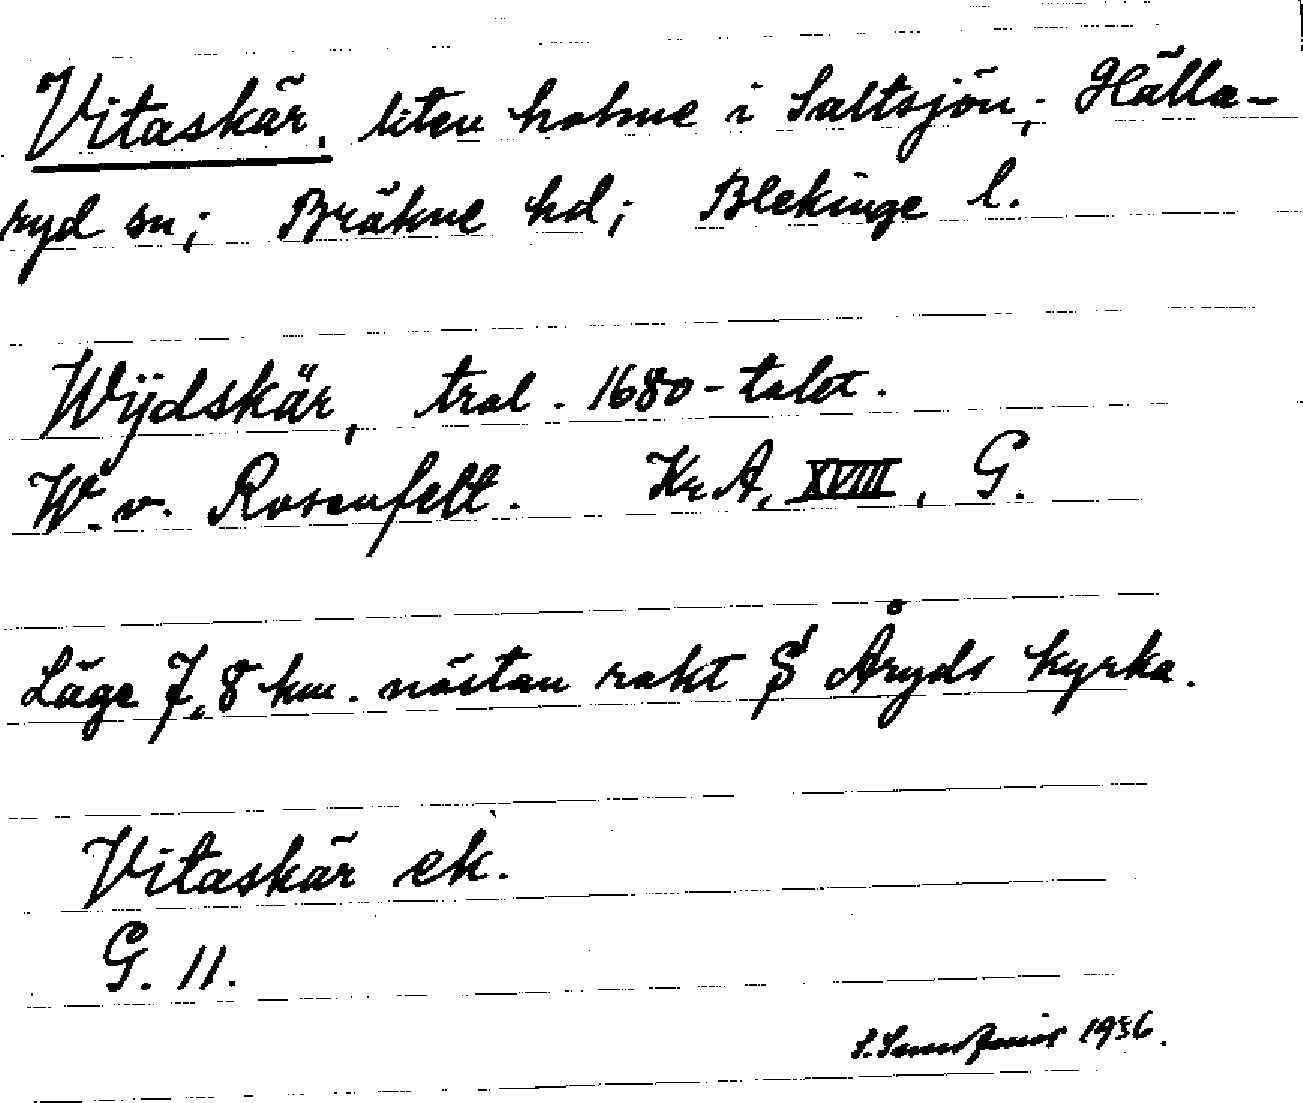 Vitaskär, liten holme i Saltsjön; Hälla-
ryd sn; Bräkne hd; Blekinge l.
Wijdskär, trol. 1680-talet.
W. v. Rosenfelt. Kr. A, XVIII, G.
Läge 7,8 km. nästan rakt S Åryds kyrka.
Vitaskär ek.
G. 11.
1936.